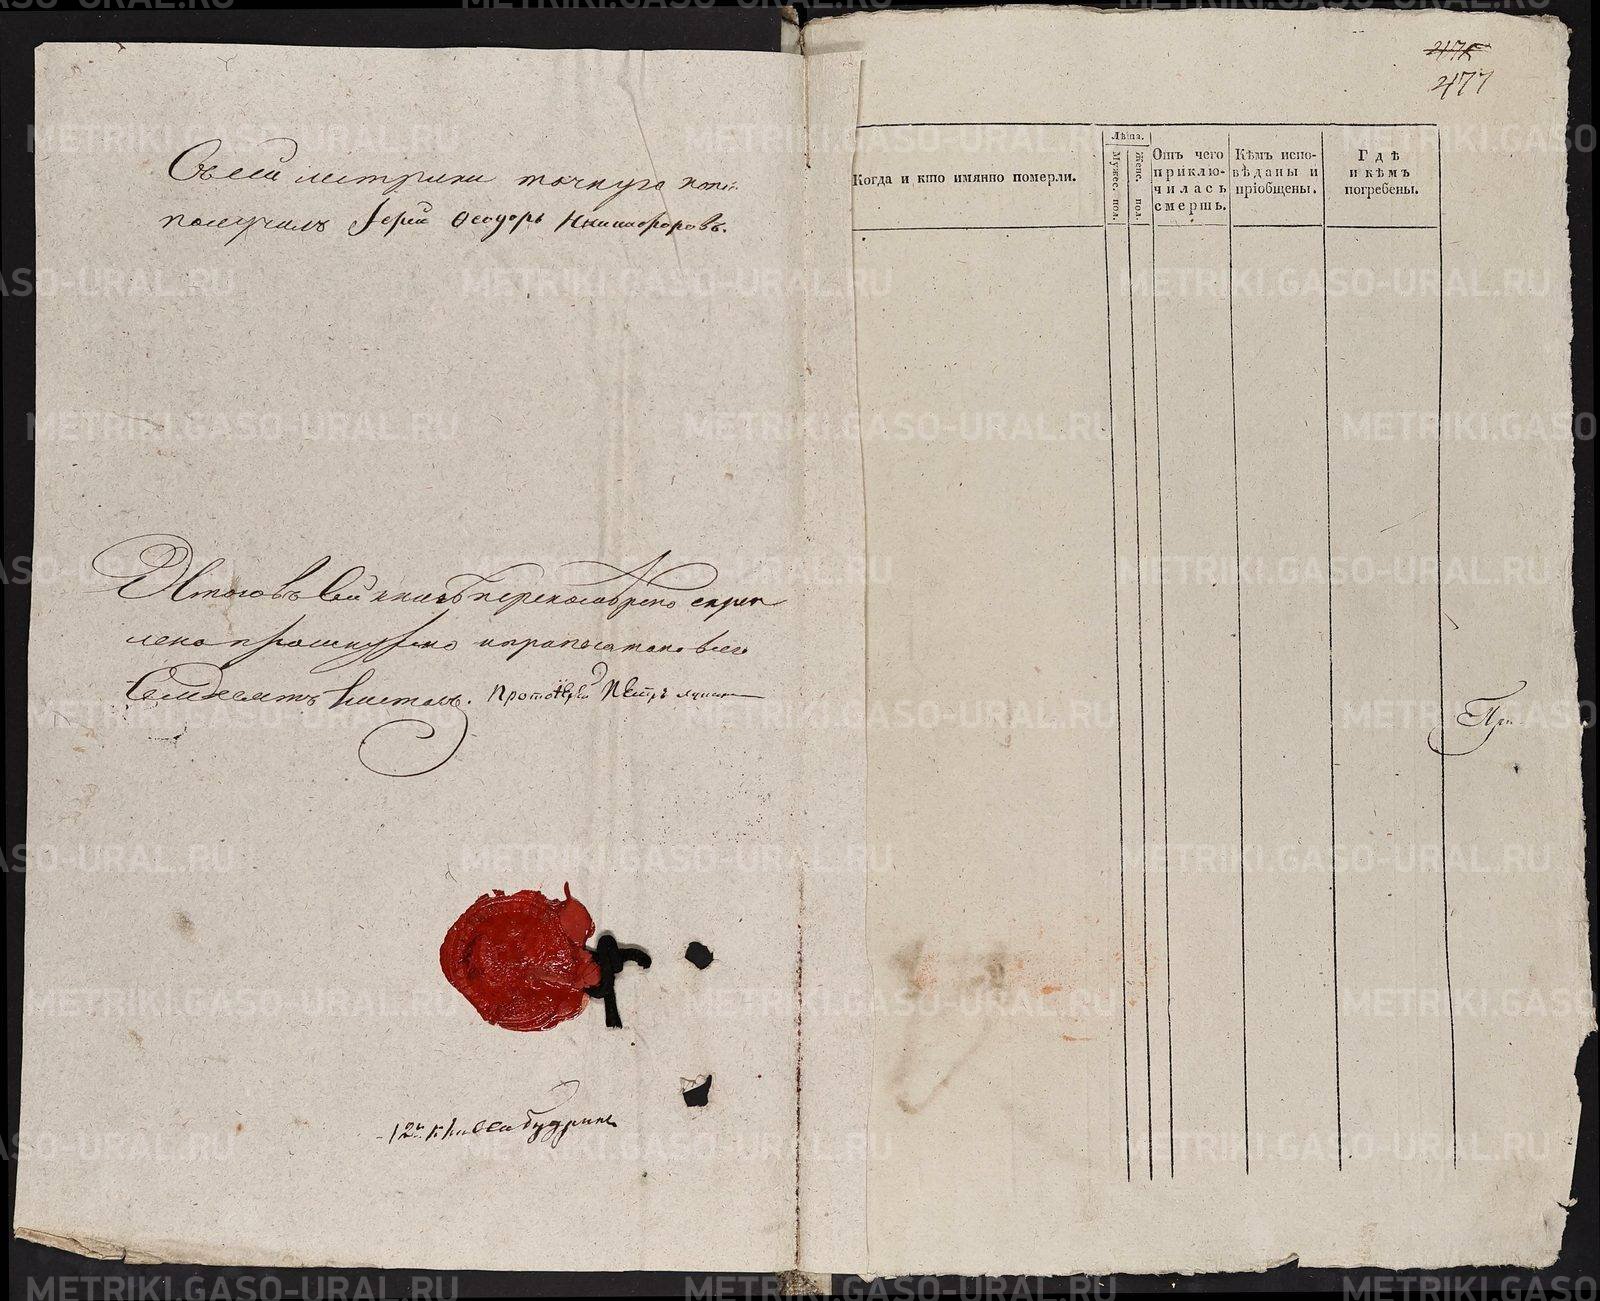 Съ сей метрики точную копи
получилъ Іерей Ѳеодоръ Никифоровъ.
Итого въ сей книгѣ перенумеровано скреп
лено прошнуровано и припечатано всего
Семдесятъ листовъ. Протоіерей Петръ
12го класса Будринъ
475
477
Когда и кто имянно померли.
Лѣта.
Мужес. пол.
Женс. пол.
Отъ чего
приклю-
чилась
смерть.
Кѣмъ испо-
вѣданы и
пріобщены.
Гдѣ
и кѣмъ
погребены.
При
METRIKI.GASO-URAL.RU